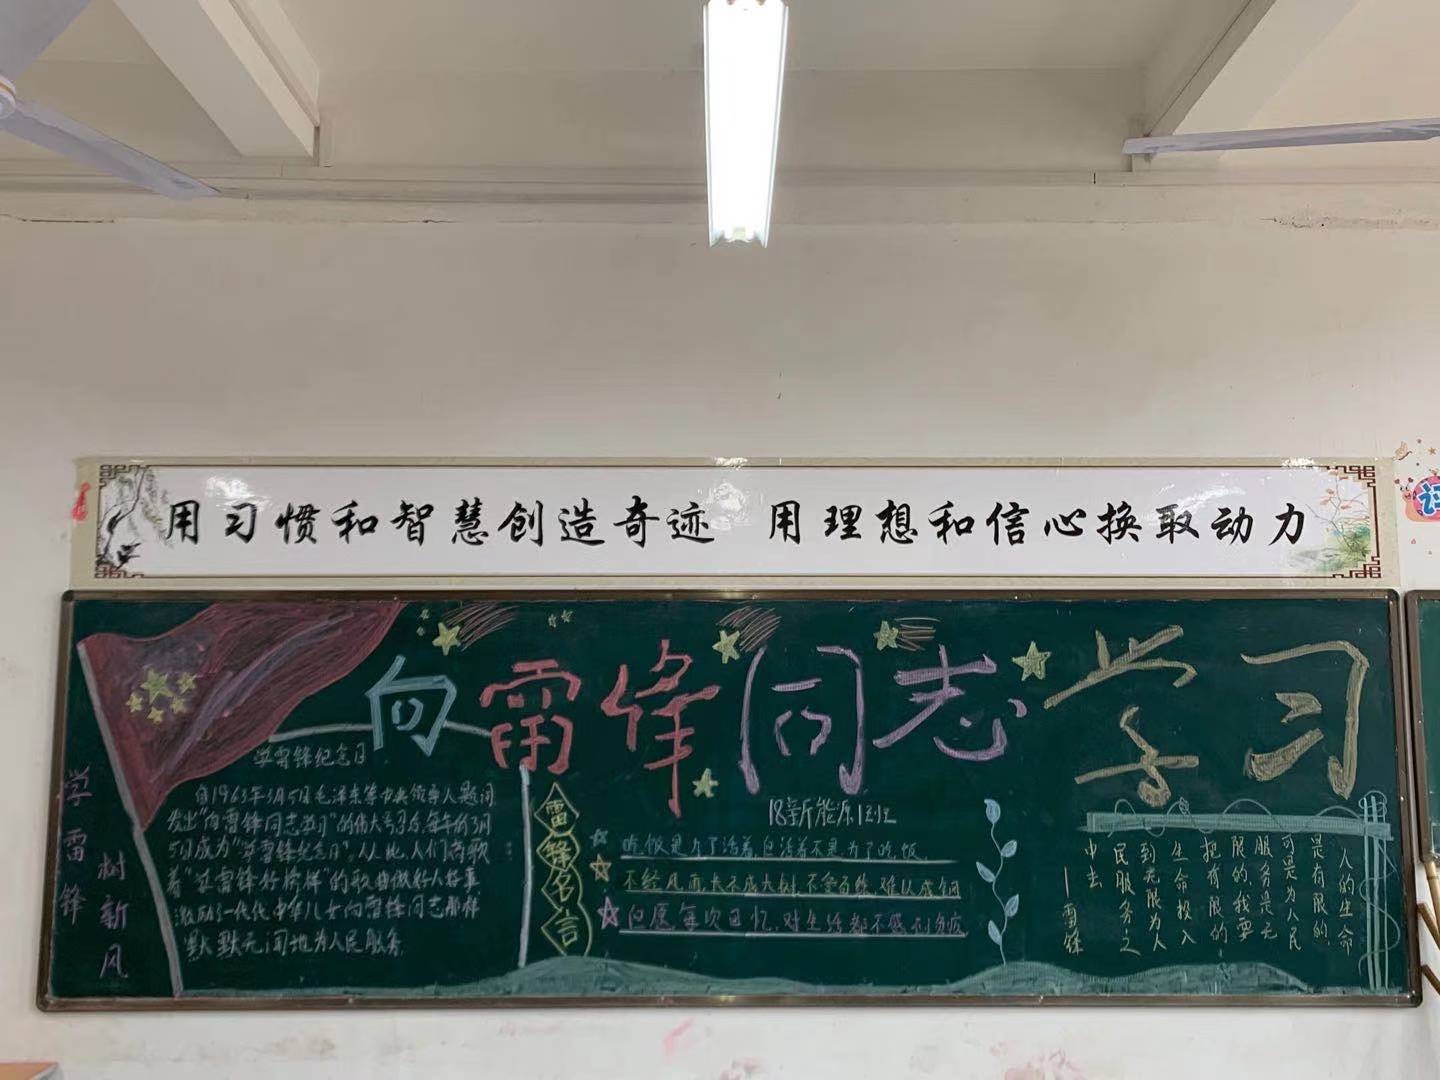 用习惯和智慧创造奇迹 用理想和信心换取动力
向雷锋同志学习
学雷锋
树新风
学雷锋纪念日
自1963年3月5日毛泽东等中央领导人题词
发出“向雷锋同志学习”的伟大号召后,每年的3月
5日成为“学雷锋纪念日”,从此,人们高歌
着“学雷锋好榜样”的歌曲做好人好事
激励一代代中华儿女向雷锋同志那样
默默无闻地为人民服务
雷锋名言
18新能源1班
吃饭是为了活着,但活着不是为了吃饭.
不经风雨,长不成大树,不受百炼,难以成钢
但愿每次回忆,对生活都不感到负疚
人的生命
是有限的,
可是为人民
服务是无
限的,我要
把有限的
生命投入
到无限为人
民服务之
中去
—雷锋